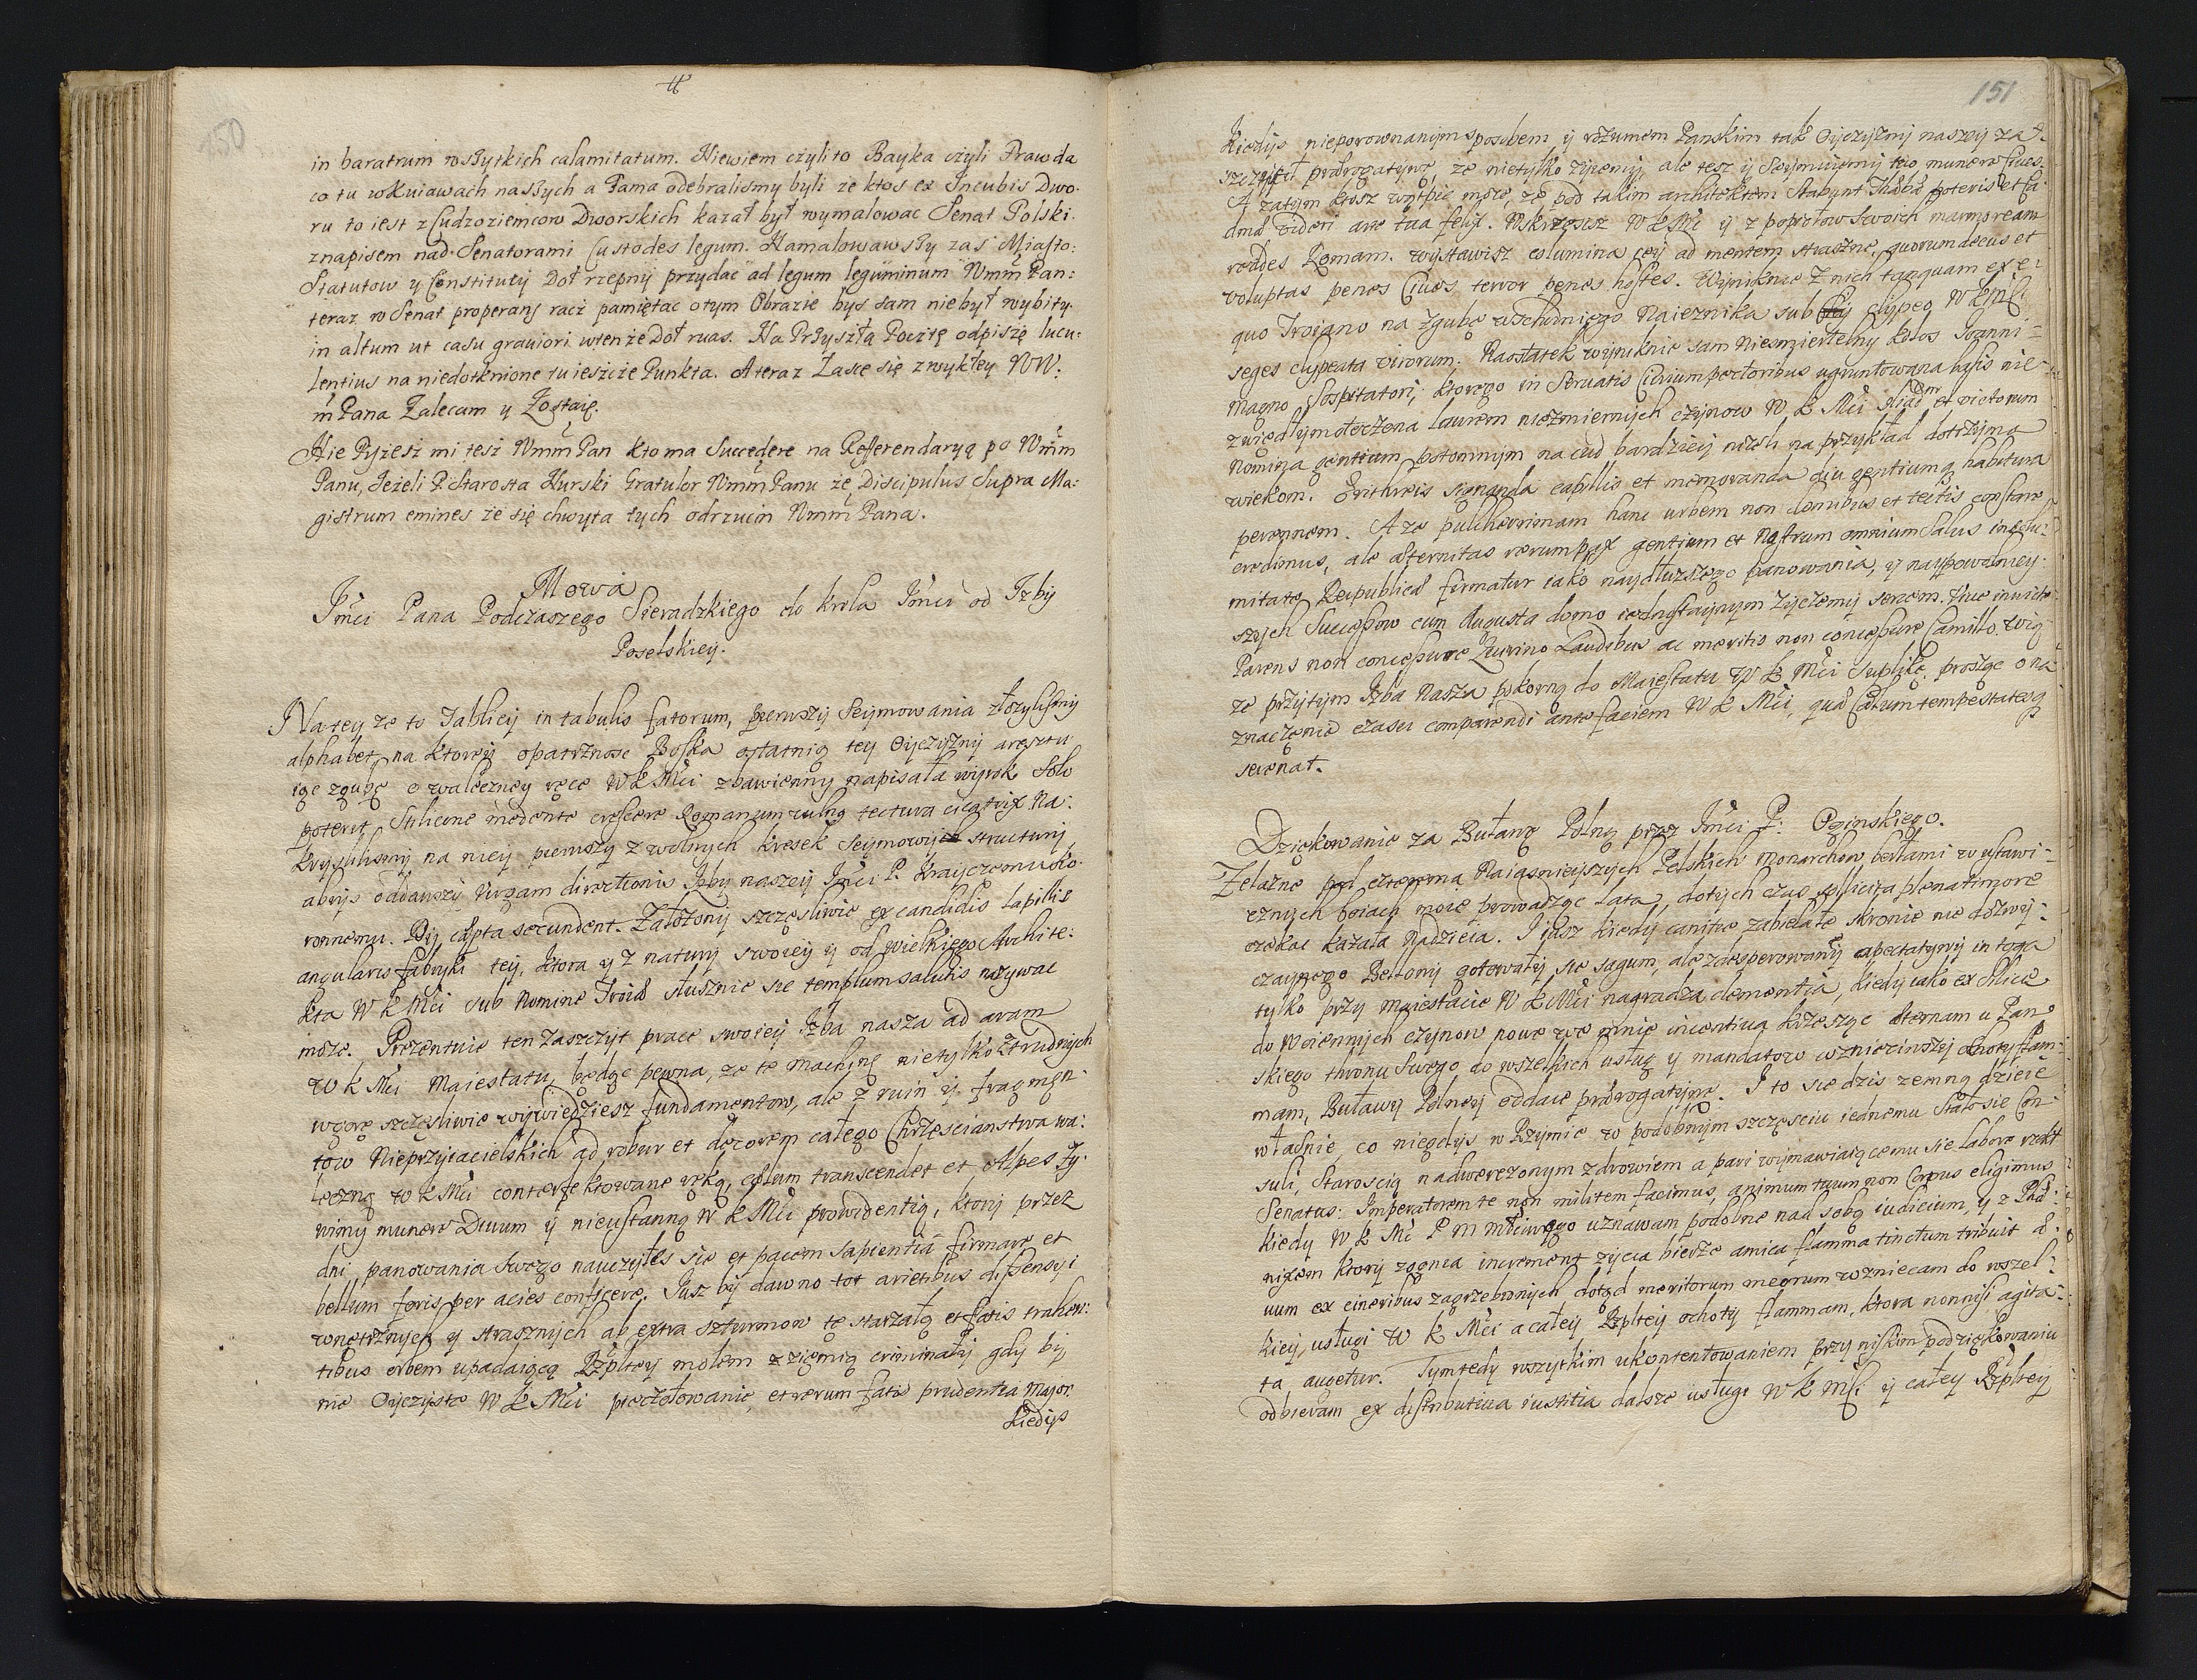 150
in baratrum wszytkich calamitatum. Niewiem czyli to Bayka czyli Prawda
co tu w Kuiawach naszych a Fama odebralismy byli że ktos ex Incubis Dwo-
ru to iest z Cudzoziemcow Dworskich kazał był wymalowac Senat Polski.
z napisem nad Senatorami Custodes legum. Namalowawszy zas Miasto:
Statutow y Constitucij Doł rzepny przydać ad legum leguminum Wmm Pan:
teraz w Senat properans racz pamiętac o tym Obrazie bys sam nie był wybity.
in altum ut casu graviori w ten że Doł ruas. Na Przyszłą Pocztę odpiszę lucu:
lentius na niedotknione tu ieszcze Punkta. A teraz Łasce się zwykłey WW:
m Pana Zalecam y Zostaię.
Nie Pyszesz mi tesz Wmm Pan kto ma Succedere na Referendaryą po Wmm
Panu, Jeżeli P. Starosta Kurski Gratulor Wmm Panu że Discipulus Supra Ma:
gistrum emines że się chwyta tych odrzucin Wmm Pana.
Mowa
Jmci Pana Podczaszego Sieradzkiego do krola Jmci od Izby
Poselskiey.
Na tey ze to Tablicy in tabulis fatorum, pierwszy Seymowania złozylismy
alphabet, na ktorey opatrznosc Boska ostatnią tey Oyczyzny aresztu
iąc zgubę o waleczney ręce W K Mci zbawienny napisała wyrok Solo
poterit Stilicone medente crescere Romanum vulnus tectura cicatrix. Na:
kryslilismy na niey pierwszy z wolnych kresek Seymowych structury
abrys oddawszy Virgam directionis Izby naszey Jmci P. Krayczemu Ko-
ronnemu. Dij cæpta secundent. Załozony szczesliwie ex candidis lapillis
angularis fabryki tey, ktora y z natury swoiey y od wielkiego Archite:
kta W K Mci sub Nomine Troiæ słusznie sie templum salutis nazywac
może. Prezentuie ten zaszczyt prace swoiey Izba nasza ad aram
W K Mci Maiestatu, będąc pewna, ze te machinę nietylko z trudnych
w gorę szczesliwie wywiedziesz fundamentow, ale z ruin y fragmen-
tow Nieprzyiacielskich ad robur et decorem całego Chrzescianstwa wa:
leczną W K Mci conterfektowane ręką, cælum transcendet et Alpes Zy-
wimy munere Divum y nieustanną W K Mci prowidentią, ktory przez
dni panowania swego nauczyłes sie et pacem sapientiâ firmare et
bellum foris per acies conficere. Jusz by dawno tot arietibus dissensyi
wnetrznych y strasznych ab extra szturmow te starzałą et fatis trahen:
tibus orbem upadaiącą Rzpltey molem z ziemią criminały gdy by
nie Oyczyste W K Mci pieczołowanie, et rerum fatis prudentia Major.
Kiedys
151
Kiedys nieporownanym sposobem y rozumem Panskim tak Oyczyzny naszey za-
szczytu prærogatywę, ze nietylko żyiemy, ale tesz y Seymuiemy tuo munere Cives.
A zatym ktosz wątpic może, ze pod takim architektem stabunt
Wskrzesisz W K Mci y z popiołow swoich marmoream
reddes Romam. wystawisz columina cey ad mentem straszne, quorum decus et
voluptas penes Cives terror penes hostes. Wyniknie z nich tanquam ex e-
quo Troiano na zgubę wschodniego Naieznika sub clÿpeo W K Mci
seges clypeata virorum. Naostatek wyniknie sam niesmiertelny kolos Joanni
Magno Sospitatori, ktorego in Servatis Civium pectoribus ugruntowana basis nie-
zwiędłym otoczena laurem niezmiernych czynow W K Mci et victorum
Nomina gentium potomnym na cud bardziey nizeli na przykład dotrzyma
wiekom. Erithreis signanda capillis et memoranda diu gentiumq habitura
perennem. A ze pulcherrimam hanc urbem non domibus et tectis constare
credimus, ale æternitas rerum pax gentium et Nostrum omnium Salus incolu-
mitate Reipublicæ firmatur iako naydłuzszego panowania, y naypowolniey-
szych Succesow cum Augusta domo iednostaynym życzemy sercem. Tuæ invicte
Parens non concessure Quirino Laudibus ac meritis non concessure Camillo. wię
ze przytym Izba Nasza pokorną do Maiestatu W K Mci Suplikę, prosząc o na-
znaczenie czasu comparendi ante faciem W K Mci, quâ Cælum tempestatesq
serenat.
Dziękowanie za Buławę Polną przez Jmci P: Oginskiego.
Zelazne pod czterema Naiasnieyszych Polskich Monarchow berłami w ustawi-
cznych boiach moie prowadząc lata, dotych czas sollicita plena timore
czekac kazała Nadzieia. I iusz kiedy canitie zabielałe skronie nie dozwy-
czaynego Bellony gotowały sie sagum, ale zdesperowaney expectatywy in toga
tylko przy Maiestacie W K Mci nagradza clementia, kiedy iako ex Silice
do Woiennych czynow nowe we mnie incentiva krzesząc æternam u Pan-
skiego thronu swego do wszelkich usług y mandatow wznieciwszy ochoty flam-
mam, Buławy Polney oddaie prærogatywę. I to sie dzis zemną dzieie
własnie, co niegdys w Rzymie w podobnym szczesciu iednemu Stało sie Con-
suli, Staroscią nadwerezonym zdrowiem a pari wymawiaiącemu sie labore rzekł
Senatus: Imperatorem te non militem facimus, animum tuum non Corpus eligimus
kiedy W K Mc P M Mciwego uznawam podobne nad sobą iudicium, y z Phæ-
nixem ktory zgonia increment zycia bierze amica flamma tinctum tribuit æ-
vum ex cineribus zagrzebionych dotąd meritorum meorum wzniecam do wszel-
kiey, usługi W K Mci a całey Rzpltey ochoty flammam, ktora nonnisi agita-
ta augetur. Tym tedy wszytkim ukontentowaniem przy niskim podziękowaniu
odbieram ex distributiva iustitia dalsze usługi W K Mci y całey Rzpltey